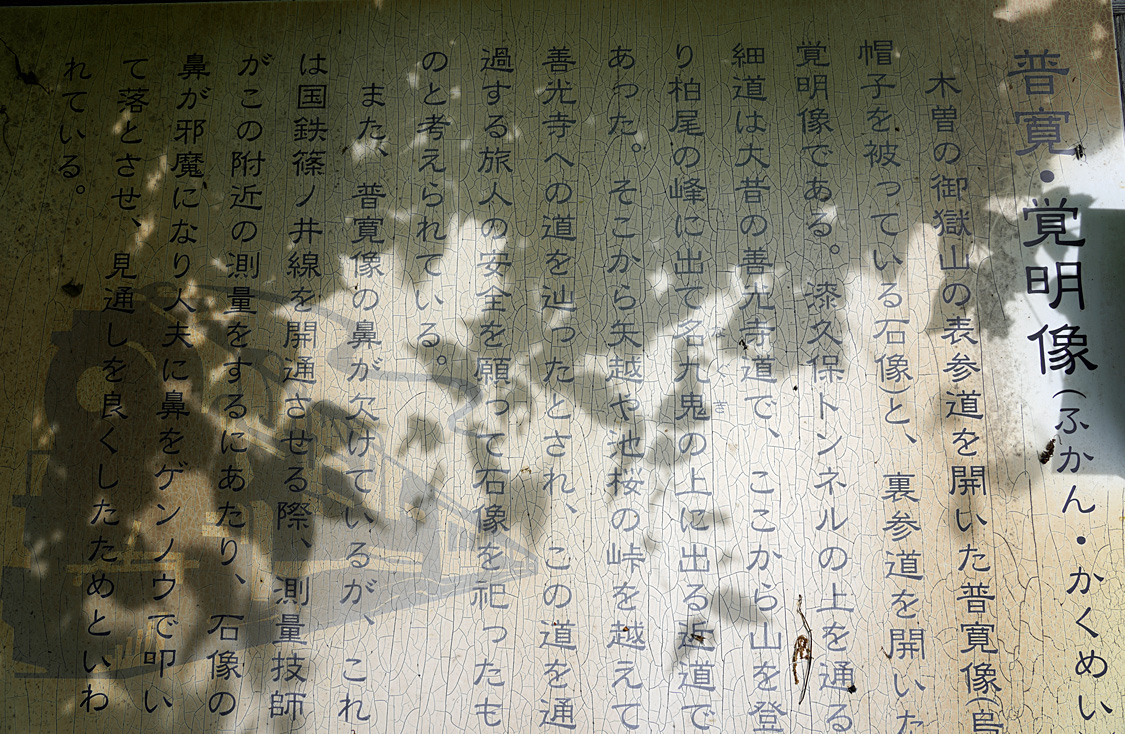 普寛・覚明像(ふかん・かくめい
木曽の御嶽山の表参道を開いた普寛像(烏
帽子を被っている石像)と、裏参道を開いた
覚明像である。漆久保トンネルの上を通る
細道は大昔の善光寺道で、ここから山を登
り柏尾の峰に出て名九鬼の上に出る近道で
あった。そこから矢越や池桜の峠を越えて
善光寺への道を辿ったとされ、この道を通
過する旅人の安全を願って石像を祀ったも
のと考えられている。
また、普寛像の鼻が欠けているが、これ
は国鉄篠ノ井線を開通させる際、測量技師
がこの附近の測量をするにあたり、石像の
鼻が邪魔になり人夫に鼻をゲンノウで叩い
て落とさせ、見通しを良くしたためといわ
れている。